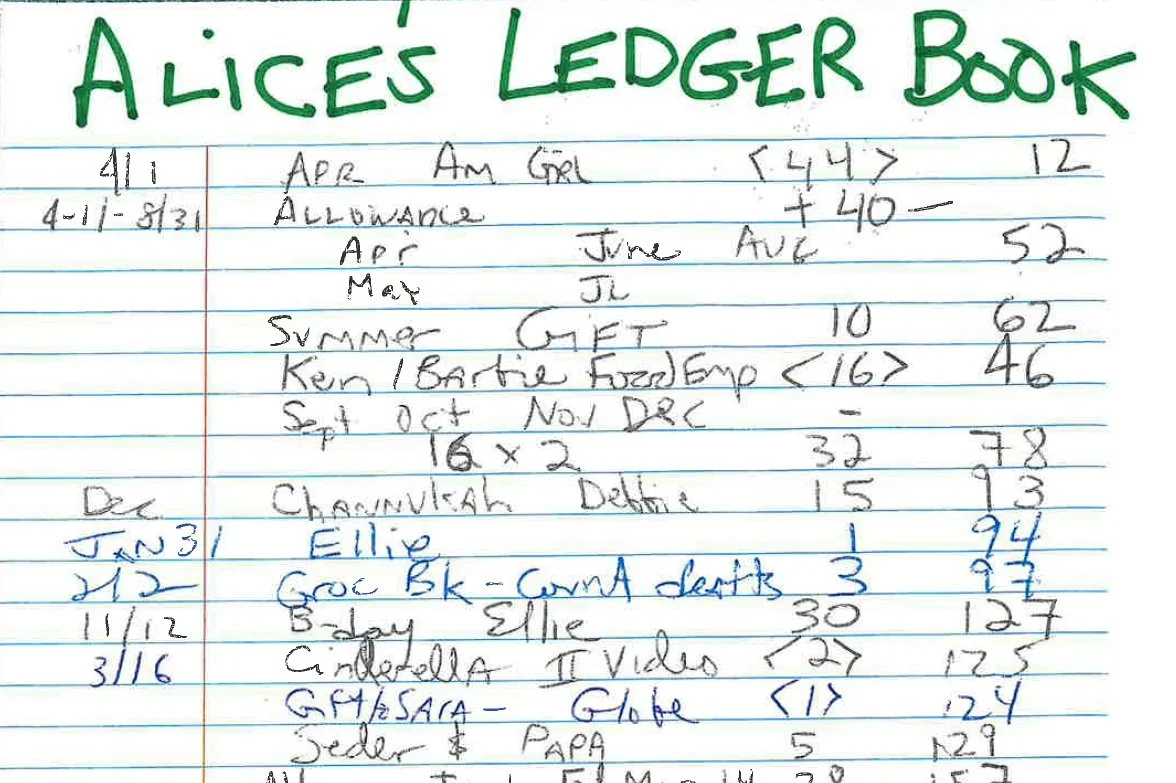 ALICE'S LEDGER BOOK
4/1 APR AM GIRL <44> 12
4-1/-8/31 ALLOWANCE +40— 52
Apr June AUG
May JL
Summer GIFT 10 62
Ken / Bartie Food Emp <16> 46
Sept Oct Nov Dec -
16 x 2 32 78
Dec CHANNUKAH Debbie 15 93
JAN 31 Ellie 1 94
2/2 Groc Bk - 3 97
11/12 B-day Ellie 30 127
3/16 Cinderella II Video <2> 125
SARA - Globe <1> 124
Seder $ PAPA 5 129